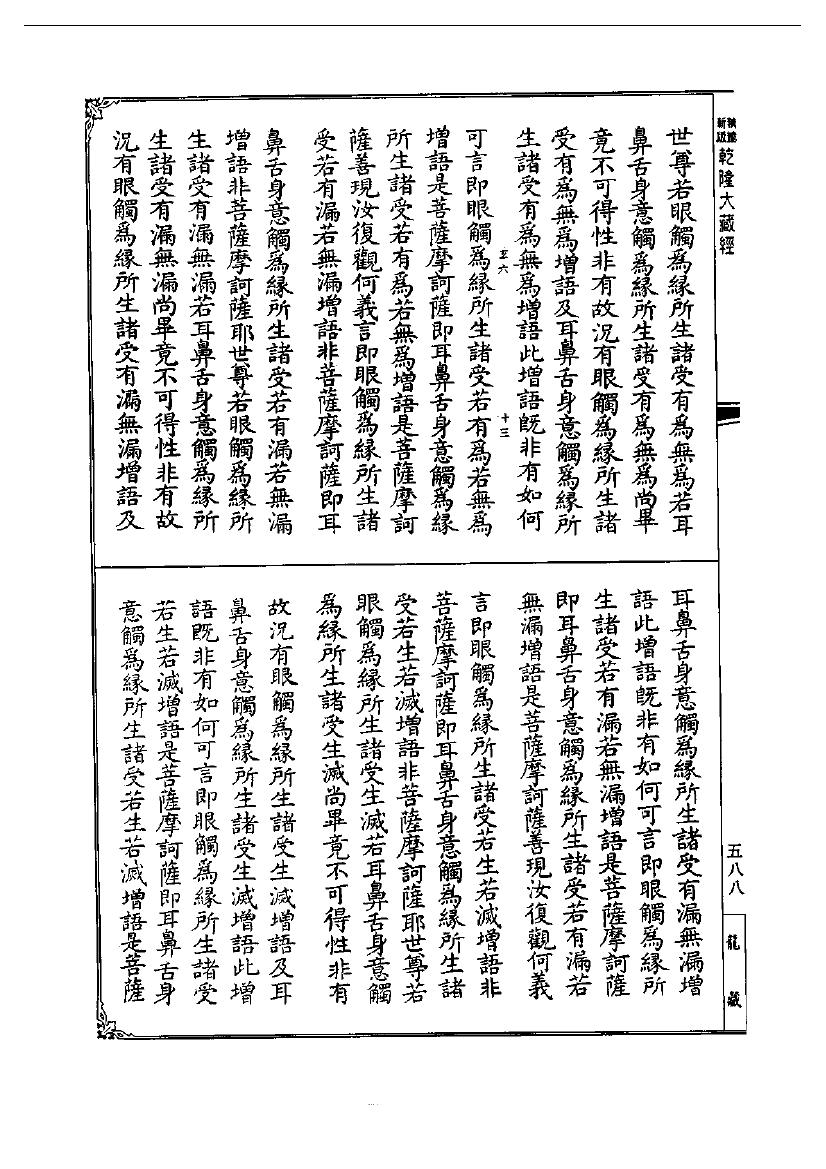 新版
乾隆大藏經
世尊若眼觸爲緣所生諸受有爲無爲若耳
鼻舌身意觸爲緣所生諸受有爲無爲尚畢
竟不可得性非有故況有眼觸爲緣所生諸
受有爲無爲增語及耳鼻舌身意觸爲緣所
生諸受有爲無爲增語此增語旣非有如何
五六
十三
可言即眼觸爲緣所生諸受若有爲若無爲
增語是菩薩摩訶薩即耳鼻舌身意觸爲緣
所生諸受若有爲若無爲增語是菩薩摩訶
薩善現汝復觀何義言即眼觸爲緣所生諸
受若有漏若無漏增語非菩薩摩訶薩即耳
鼻舌身意觸爲緣所生諸受若有漏若無漏
增語非菩薩摩訶薩耶世尊若眼觸爲緣所
生諸受有漏無漏若耳鼻舌身意觸爲緣所
生諸受有漏無漏尚畢竟不可得性非有故
況有眼觸爲緣所生諸受有漏無漏增語及
耳鼻舌身意觸爲緣所生諸受有漏無漏增
語此增語旣非有如何可言即眼觸爲緣所
生諸受若有漏若無漏增語是菩薩摩訶薩
即耳鼻舌身意觸爲緣所生諸受若有漏若
無漏增語是菩薩摩訶薩善現汝復觀何義
言即眼觸爲緣所生諸受若生若滅增語非
菩薩摩訶薩即耳鼻舌身意觸爲緣所生諸
受若生若滅增語非菩薩摩訶薩耶世尊若
眼觸爲緣所生諸受生滅若耳鼻舌身意觸
爲緣所生諸受生滅尚畢竟不可得性非有
故況有眼觸爲緣所生諸受生滅增語及耳
鼻舌身意觸爲緣所生諸受生滅增語此增
語旣非有如何可言即眼觸爲緣所生諸受
若生若滅增語是菩薩摩訶薩即耳鼻舌身
意觸爲緣所生諸受若生若滅增語是菩薩
五八八
龍藏